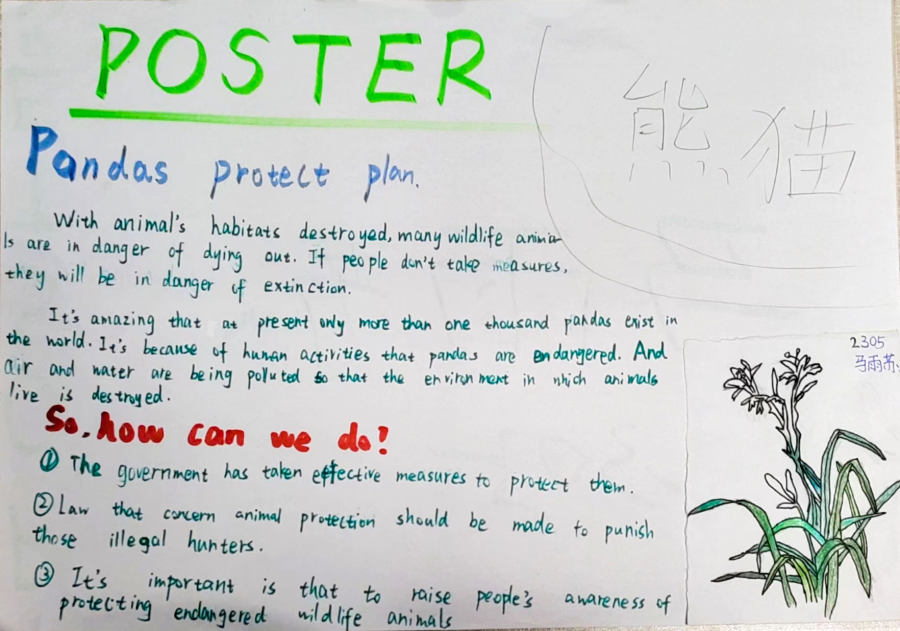 POSTER
熊猫
Pandas protect plan.
With animal's habitats destroyed, many wildlife anima
ls are in danger of dying out. If people don't take measures,
they will be in danger of extinction.
It's amazing that at present only more than one thousand pandas exist in
the world. It's because of human activities that pandas are endangered. And
air and water are being polluted so that the environment in which animals
live is destroyed.
2305
马雨苏
So, how can we do!
① The government has taken effective measures to protect them.
② Law that concern animal protection should be made to punish
those illegal hunters.
③ It's important is that to raise people's awareness of
protecting endangered wildlife animals